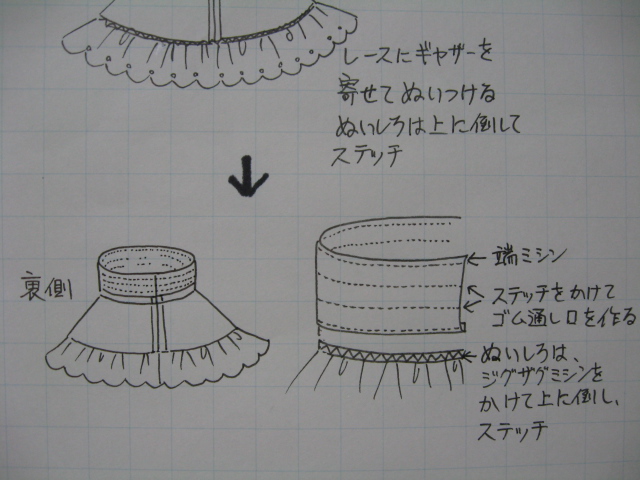 レースにギャザーを
寄せてぬいつける
ぬいしろは上に倒して
ステッチ
裏側
端ミシン
ステッチをかけて
ゴム通し口を作る
ぬいしろは、
ジグザグミシンを
かけて上に倒し、
ステッチ